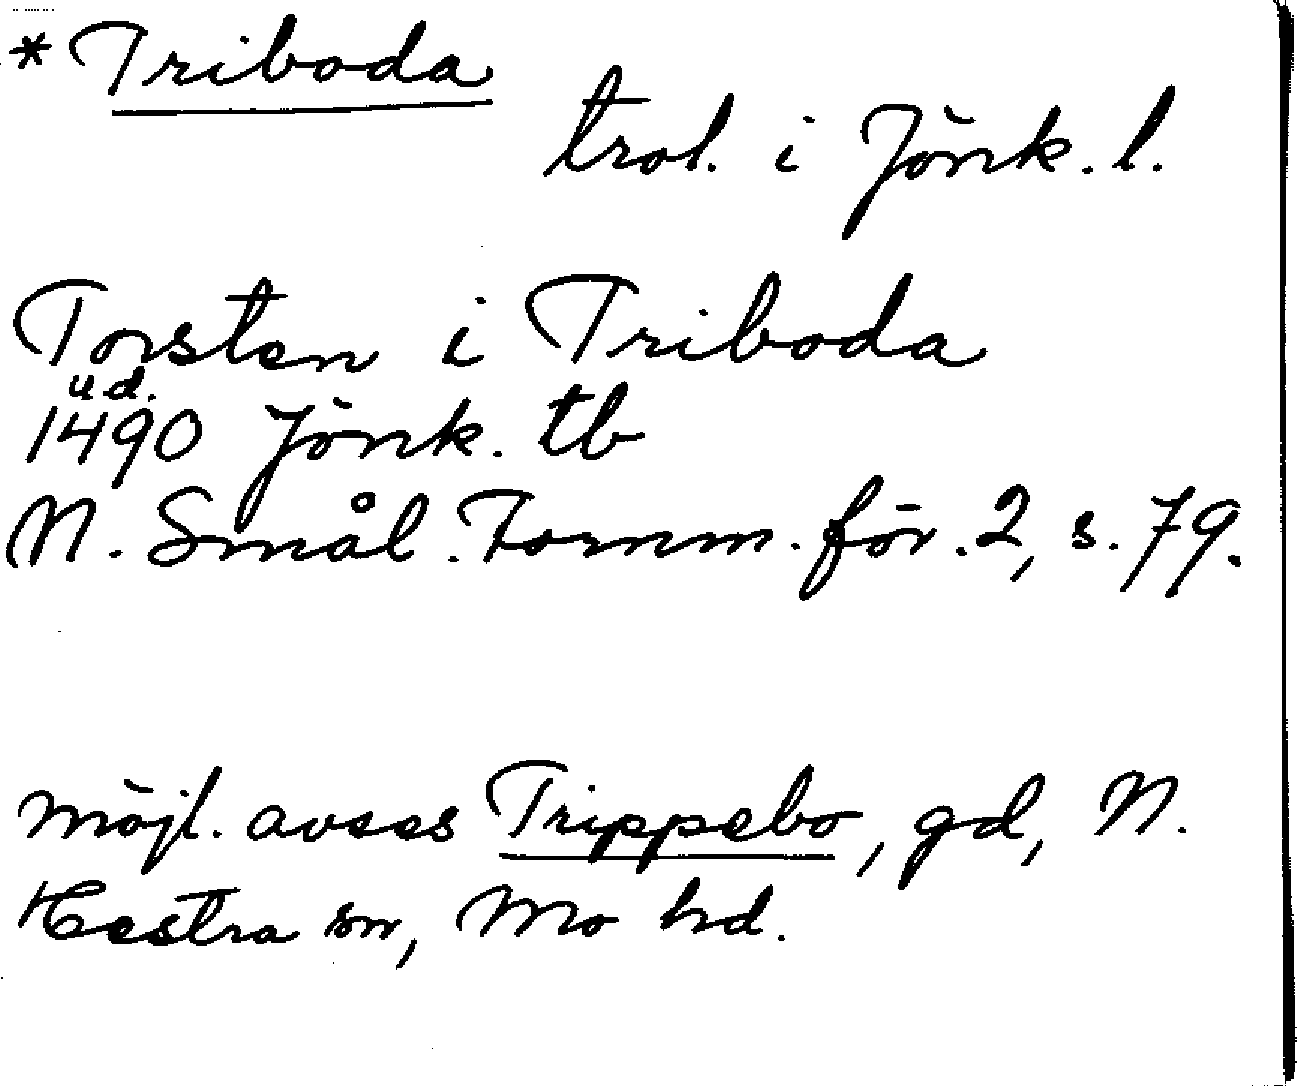 * Triboda
trol. i Jönk. l.
Torsten i Triboda
u.d.
1490 Jönk. tb
N. Smål. Fornm. för. 2, s. 79.
möjl. avses Trippebo, gd, N.
Hestra sn, Mo hd.